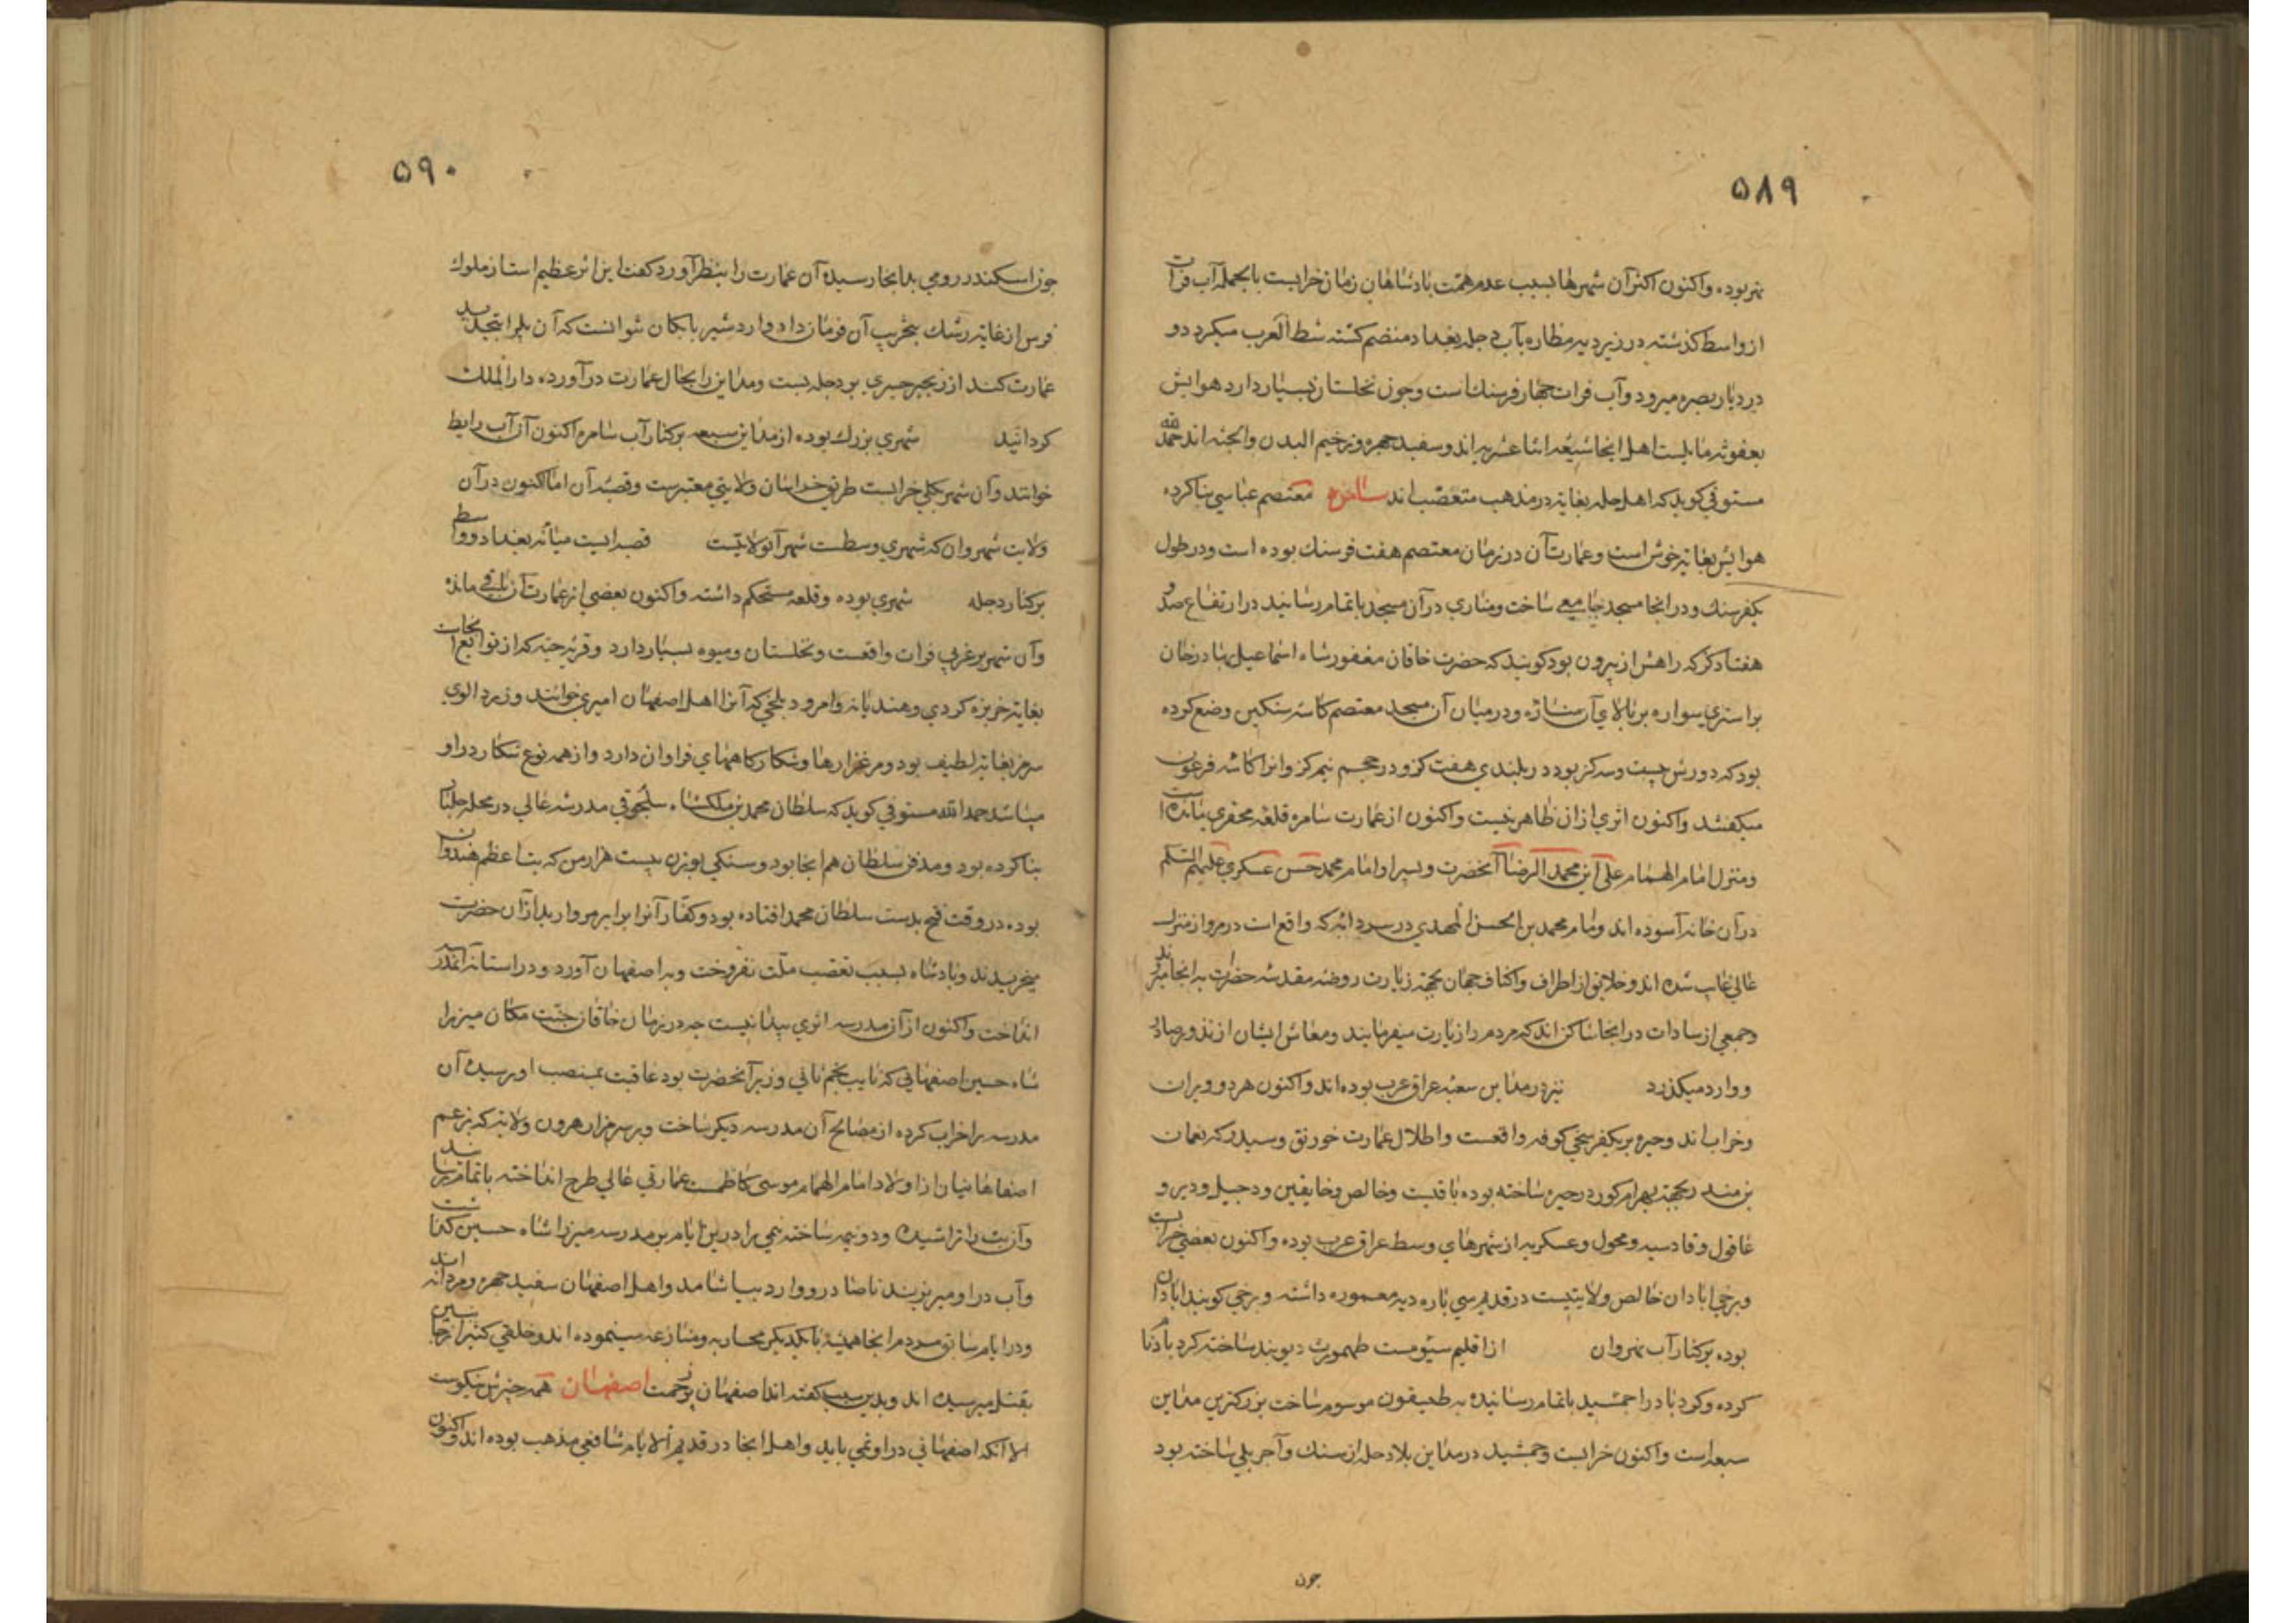 ۵۸۹
نیز بوده و اکنون اکثر آن شهرها بسبب عدم همت پادشاهان زمان خرابست بالجمله آب فرات
از واسط گذشته در زیر دیه مطاره بآب دجله بغداد منضم گشته شط العرب میگردد و
در دیار بصره میرود و آب فرات چهار فرسنك است و چون نخلستان بسیار دارد هوایش
بعفونه مایلست اهل انجا شیعه اثنا عشریه اند و سفید چهره و ضخیم البدن والجثه اند حمد الله
مستوفی کوید که اهل حله بغایة در مذهب متعصب اند سامره معتصم عباسی بنا کرده
هوایش بغایة خوش است و عمارت آن در زمان معتصم هفت فرسنك بوده است و در طول
یکفرسنك و در انجا مسجد جامعی ساخت و مناری در آن مسجد باتمام رسانید در ارتفاع صد و
هفتاد کز که راهش از بیرون بود کویند که حضرت خاقان مغفور شاه اسماعیل بهادر خان
بر استری سواره بر بالای آن مناره و در میان آن مسجد معتصم کاسه سنکین وضع کرده
بود که دورش بیست و سه کز بود در بلندی هفت کز و در حجم نیم کز و انرا کاسه فرعون
میکفتند و اکنون اثری از ان ظاهر نیست و اکنون از عمارت سامره قلعه محقری مانده است
و منزل امام الهمام علی ابن محمد الرضا آنحضرت و پسر او امام محمد حسن عسکری علیهم السلم
در آن خانه آسوده اند و امام محمد بن الحسن المهدی در سردابه که واقع است در مر و از منزل
عالی غایب شده اند و خلایق از اطراف و اکناف جهان بجهة زیارت روضه مقدسه حضرات به انجا میروند
و جمعی از سادات در انجا ساکن اند که مردم را زیارت میفرمایند و معاش ایشان از نذور صادر
و وارد میکذرد نیز در مداین سبعه عراق عرب بوده اند و اکنون هر دو ویران
و خراب اند و حیره بر یکفرسخی کوفه واقعست و اطلال عمارت خورنق و سدیر که نعمان
بن منذر بجهة بهرام کور در حیره ساخته بوده باقیست و خالص و خانقین و دجیل و دیر و
عاقول و قادسیه و محول و عسکریه از شهرهای وسط عراق عرب بوده و اکنون بعضی خرابست
و برخی ابادان خالص ولایتیست در قدیم سی پاره دیه معموره داشته و برخی کویند ابادان
بوده بر کنار آب نهروان از اقلیم سیومست طهمورث دیوبند ساخته کرد باد نام
کرده و کرد باد را جمشید باتمام رسانیده به طیسفون موسوم ساخت بزرکترین مداین
سبعه است و اکنون خرابست و جمشید در مداین بلاد دجله از سنك و آجر پلی ساخته بود
چون
۵۹۰
چون اسکندر رومی بدانجا رسیده آن عمارت را بنظر آورد کفت این اثر عظیم است از ملوك
فرس از غایة رشك بتخریب آن فرمان داد و اردشیر بابکان نتوانست که آن پل را بتجدید
عمارت کند از زنجیر جسری بر دجله بست و مداین را بحال عمارت در آورده دار الملك
کردانید شهری بزرك بوده از مداین سبعه بر کنار آب سامره اکنون آن آب را بط
خوانند و آن شهر بکلی خرابست طریق خراسان ولایتی معتبرست و قصبه آن اما اکنون در آن
ولایت شهروان که شهری وسطست شهر آنولایتست قصبه ایست میانه بغداد و واسط
بر کنار دجله شهری بوده و قلعه مستحکم داشته و اکنون بعضی از عمارت آن باقی مانده
و آن شهر بر غربی فرات واقعست و نخلستان و میوه بسیار دارد و قریه جبه که از توابع انجاست
بغایة خربزه کردی و هندیانه و امرود بلخی که آنرا اهل اصفهان امیری خوانند و زرد الوی
سرخ بغایة لطیف بود و مرغزارها و شکارکاههای فراوان دارد و از همه نوع شکار در او
میباشد حمد الله مستوفی کوید که سلطان محمد بن ملکشاه سلجوقی مدرسه عالی در محله جلبا
بنا کرده بود و مدفن سلطان هم انجا بود و سنکی بوزن بیست هزار من که بت اعظم هندوان
بوده در وقت فتح بدست سلطان محمد افتاده بود و کفار آنرا برابر مروارید از آن حضرت
میخریدند و پادشاه بسبب تعصب ملت نفروخت و به اصفهان آورد و در استانه آن مدرسه
انداخت و اکنون از آن مدرسه اثری پیدا نیست چه در زمان خاقان جنت مکان میرزا
شاه حسین اصفهانی که نایب نجم ثانی وزیر آنحضرت بود عاقبت بمنصب او رسیده آن
مدرسه را خراب کرده از مصالح آن مدرسه دیکر ساخت و بر سر مزار هرون ولایة که بزعم
اصفاهانیان از اولاد امام الهمام موسی کاظمست عمارتی عالی طرح انداخته باتمام رسانید
و آن بت را تراشیده و دو نیمه ساخته نیمی را درین ایام بر مدرسه میرزا شاه حسین کذاشت
و آب در او میریزند تا صادر و وارد بیاشامد و اهل اصفهان سفید چهره و مردانه اند
و در ایام سابق مردم انجا همیشه با یکدیکر محاربه و منازعه مینموده اند و خلقی کثیر از جانبین
بقتل میرسیده اند و بدین سبب کفته اند اصفهان پر زحمت اصفهان همه چیزش نیکوست
الا آنکه اصفهانی در او نمی باید و اهل انجا در قدیم الایام شافعی مذهب بوده اند و اکنون